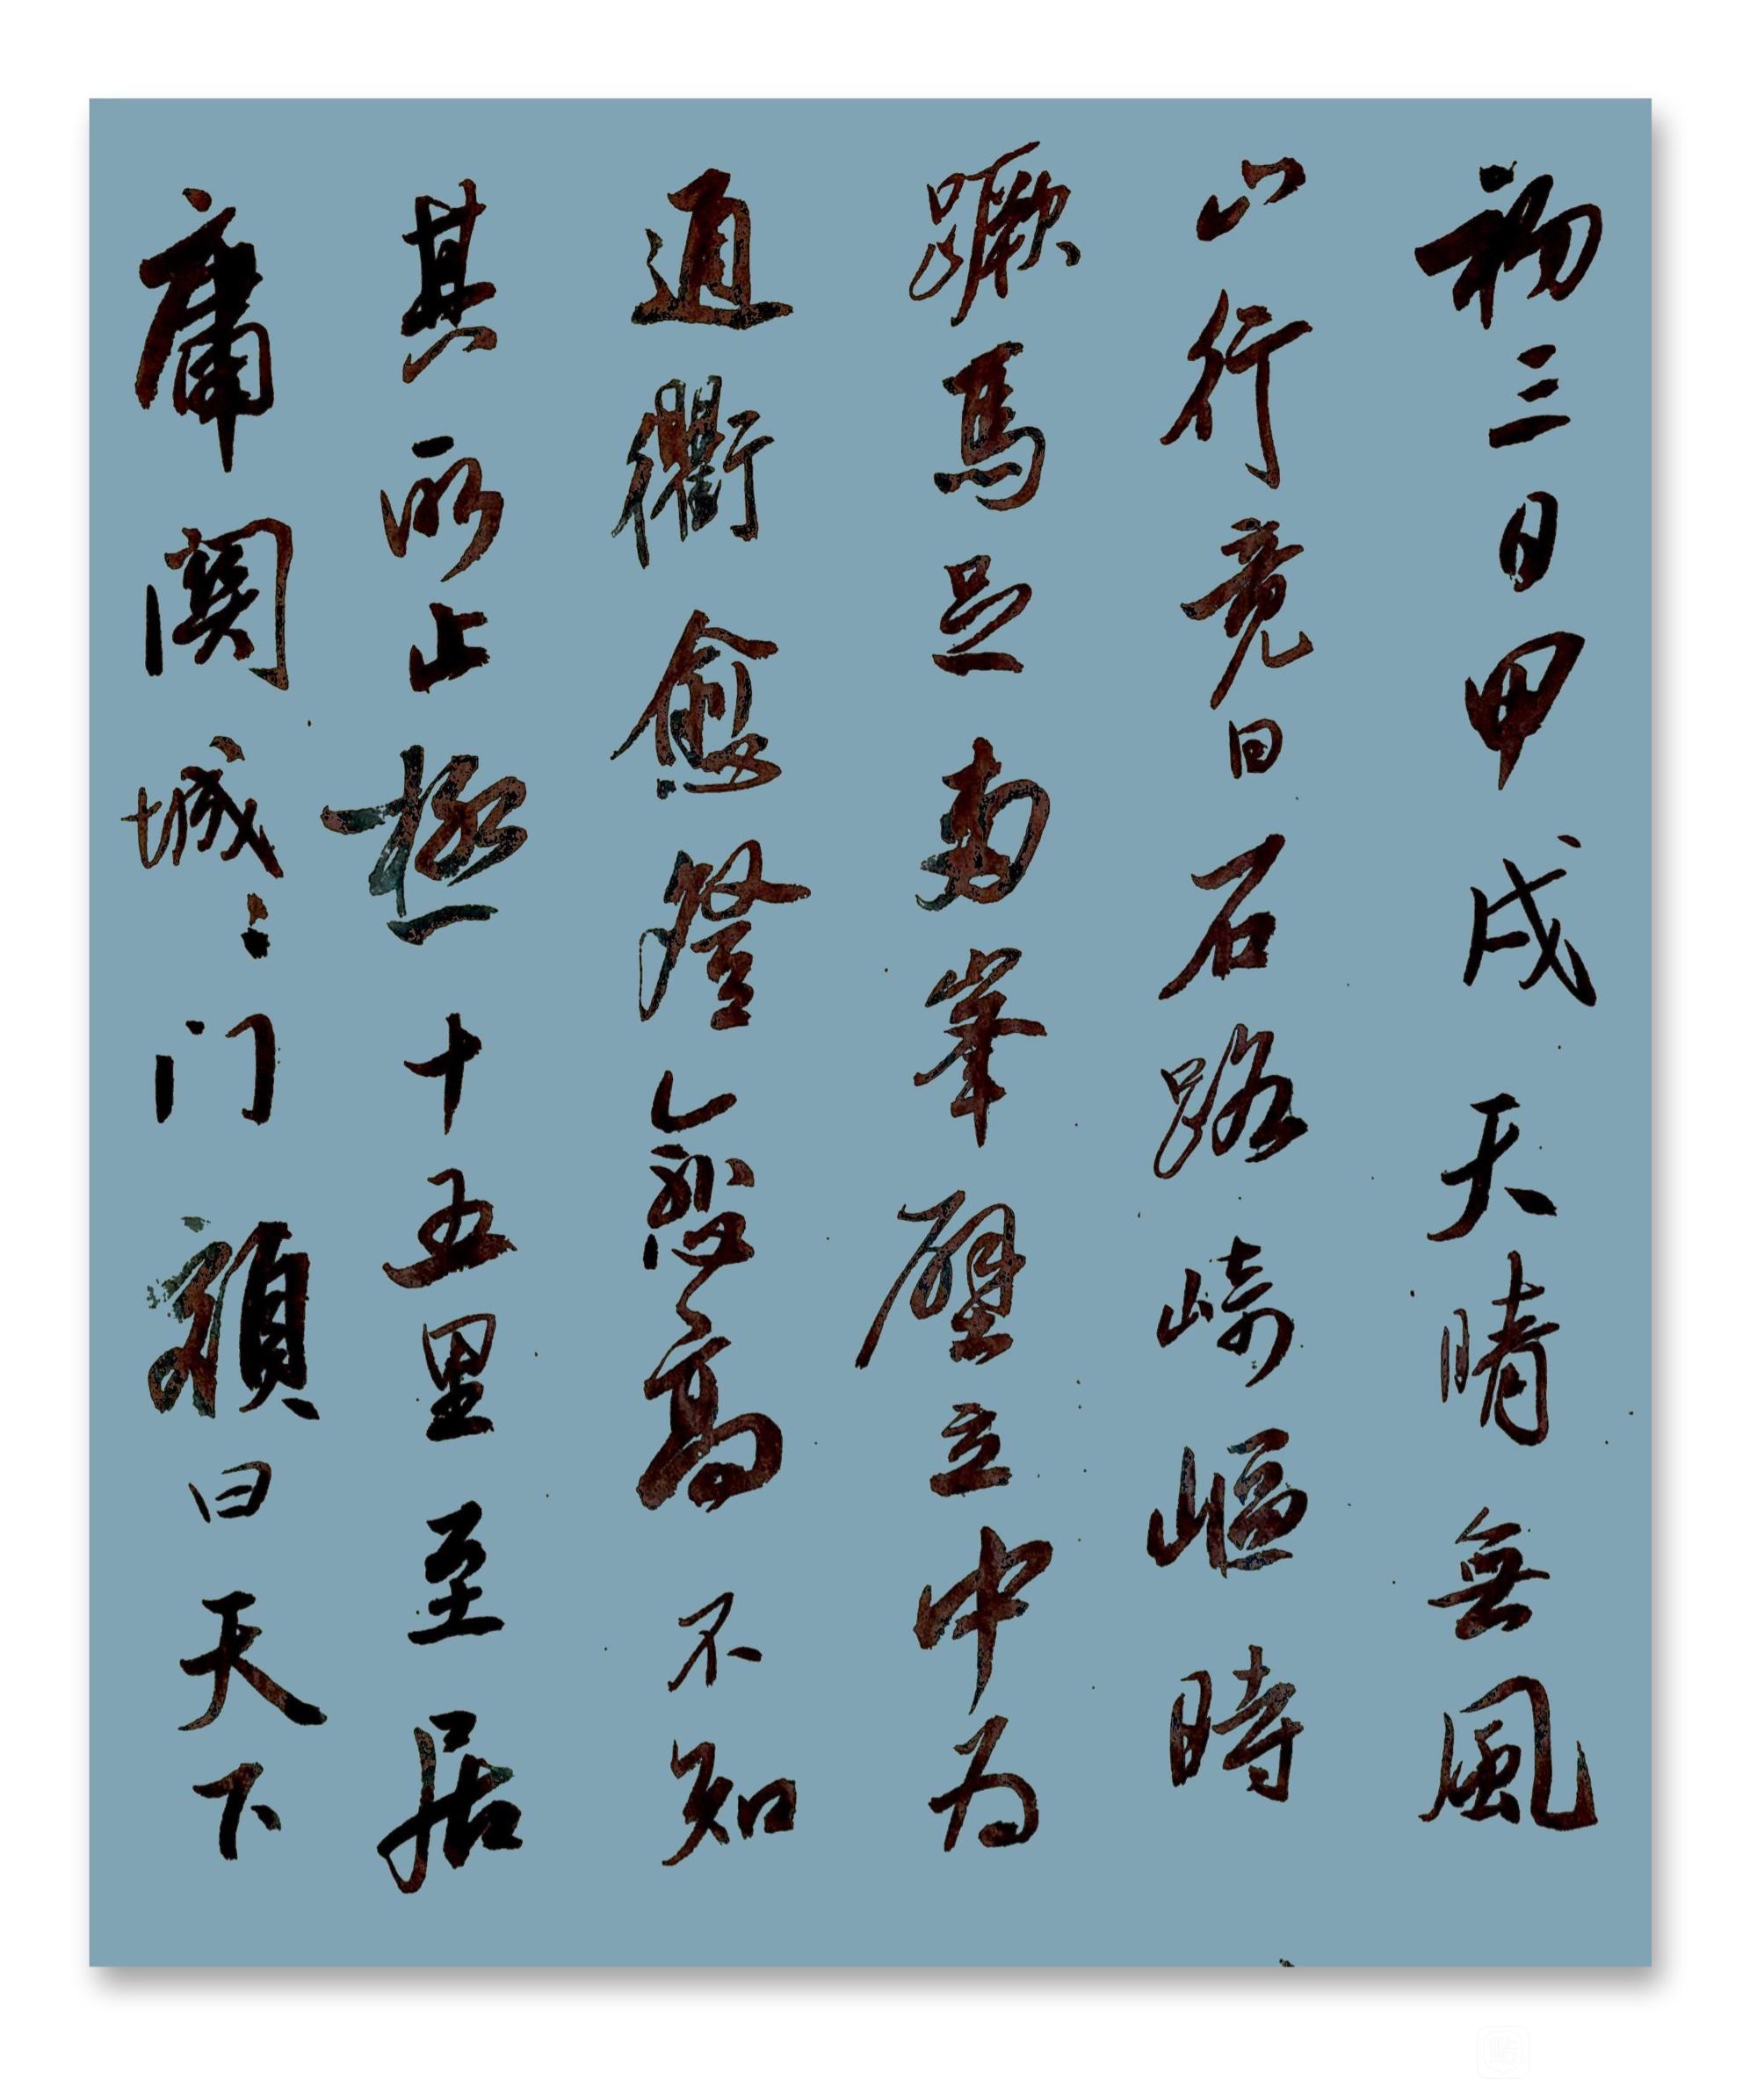 初三日甲戌天晴無風
山行竟日石路崎嶇時
蹶馬足南峯壁立中为
通衢愈登愈高不知
其所止極十五里至居
庸関城〻门額曰天下